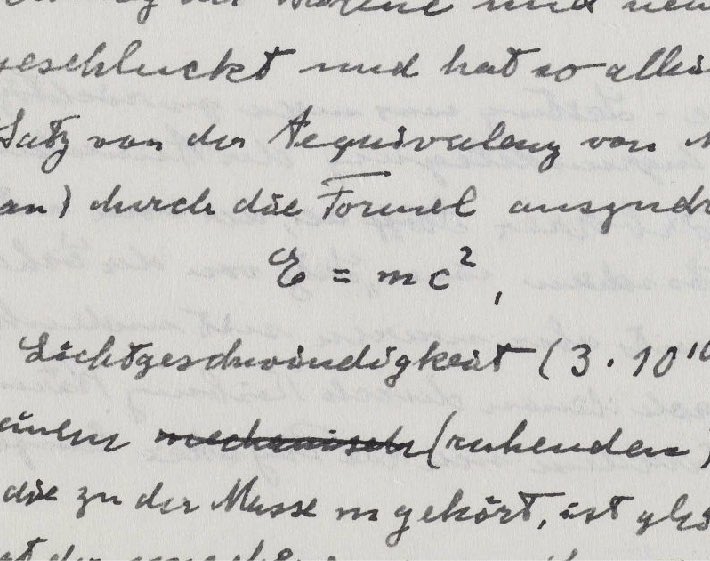 geschluckt und hat so allei
Satz von der Aequivalenz von
an) durch die Formel auszudr
E = mc²,
Lichtgeschwindigkeit (3 · 10¹⁰
einem mechanisch (ruhenden)
die zu der Masse m gehört, ist gle